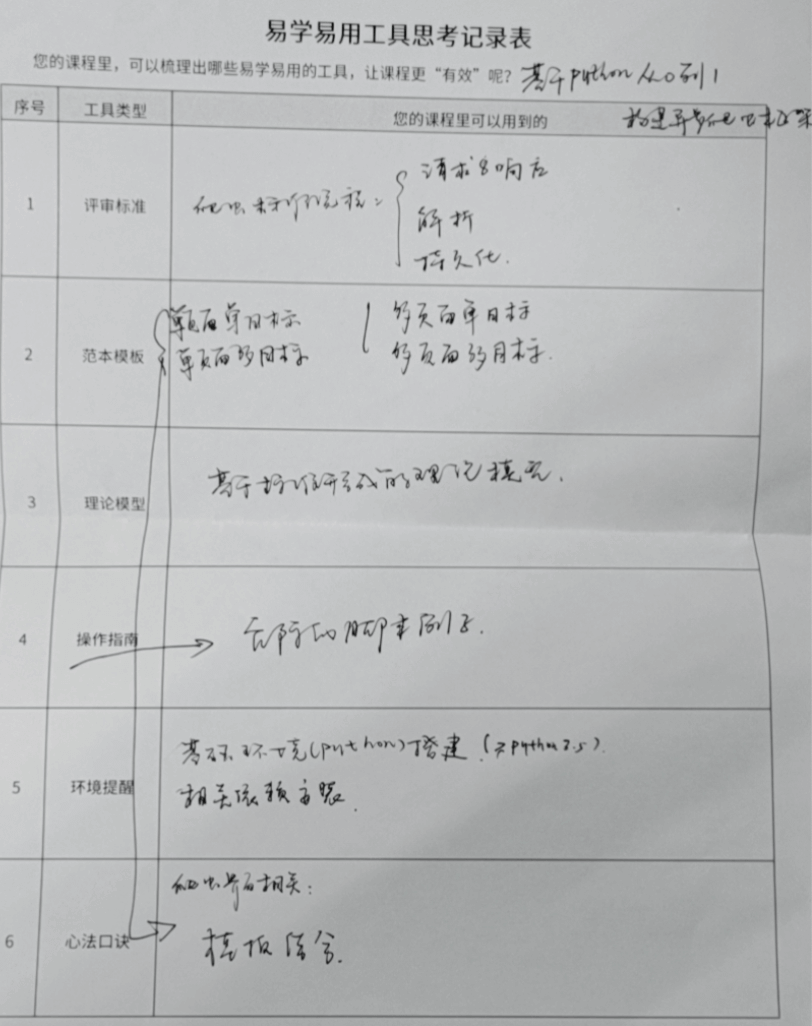 易学易用工具思考记录表
您的课程里，可以梳理出哪些易学易用的工具，让课程更“有效”呢？ 基于python从0到1
序号 工具类型 您的课程里可以用到的 构建异步爬虫框架
1 评审标准 爬虫标准流程： 请求&响应
解析
持久化.
2 范本模板 单页面单目标 多页面单目标
单页面多目标 多页面多目标.
3 理论模型 基于 的理论模型.
4 操作指南 脚本例子.
5 环境提醒 基础环境(python)搭建 (≥python3.5).
相关依赖安装.
6 心法口诀 爬虫 相关:
模板结合.